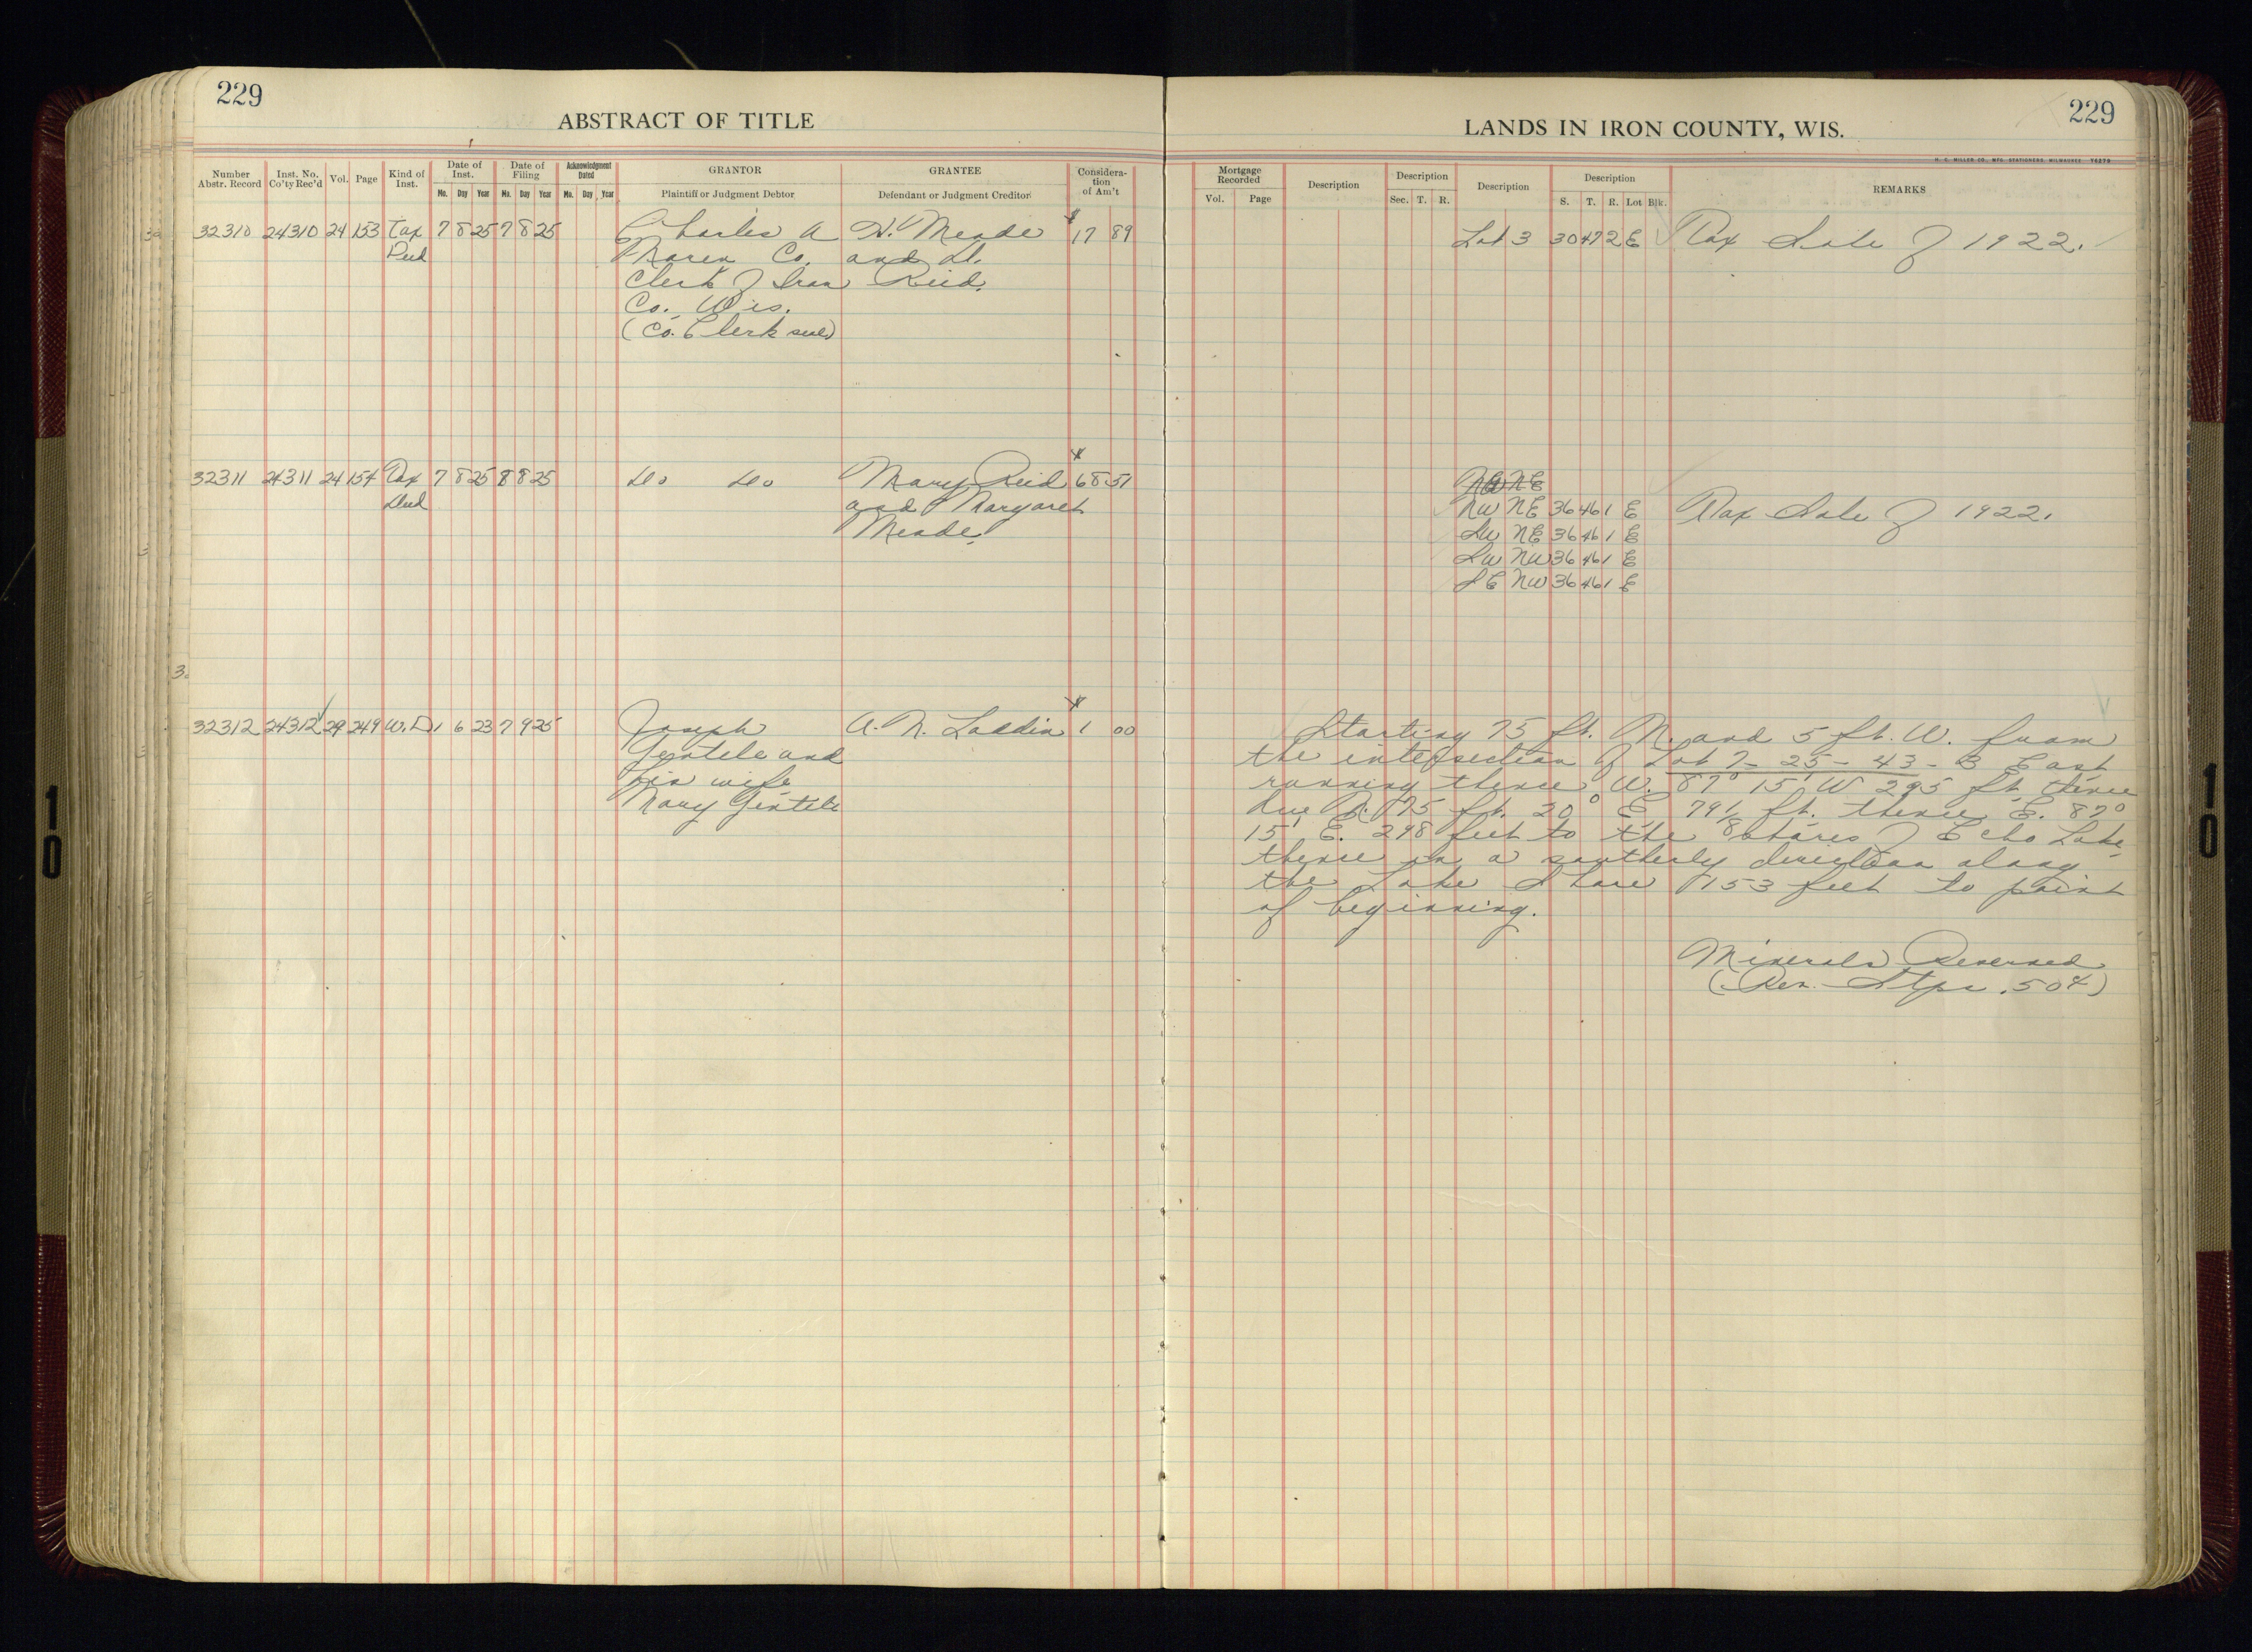 229
ABSTRACT OF TITLE
Number Abstr. Record
Inst. No. Co'ty Rec'd
Vol.
Page
Kind of Inst.
Date of Inst.
Mo. Day Year
Date of Filing
Mo. Day Year
Acknowledgment Dated
Mo. Day Year
GRANTOR
Plaintiff or Judgment Debtor
GRANTEE
Defendant or Judgment Creditor
Considera-
tion
of Am't
32310 24310 24 153 Tax 7 8 25 7 8 25 Charles A H. Meade $17 89
Deed Co. and
Clerk of Iron Reid.
Co. Wis.
(Co. Clerk seal)
32311 24311 24 154 Tax 7 8 25 8 8 25 do do Mary Reid $68 51
Deed and Margaret
Meade.
32312 24312 29 249 W.D 1 6 23 7 9 25 Joseph A. N. $1 00
Gentile and
his wife
Mary Gentile
229
LANDS IN IRON COUNTY, WIS.
H. C. MILLER CO., MFG. STATIONERS, MILWAUKEE
Mortgage Recorded
Vol. Page
Description
Description
Sec. T. R.
Description
Description
S. T. R. Lot Blk.
REMARKS
Lot 3 30 47 2 E Tax Sale of 1922.
NW NE 36 46 1 E Tax Sale of 1922.
SW NE 36 46 1 E
SW NW 36 46 1 E
SE NW 36 46 1 E
Starting 75 ft. N. and 5 ft. W. from
the intersection of Lot 7- 25- 43- 3 East
running thence W. 87° 15' W 295 ft thence
due N. 75 ft. 20° E. 79½ ft. thence E. 87°
15' E. 298 feet to the shores of Echo Lake
thence in a southerly direction along
the Lake Shore 153 feet to point
of beginning.
Minerals Reserved
(Rev. Stps. .50¢)
10
10